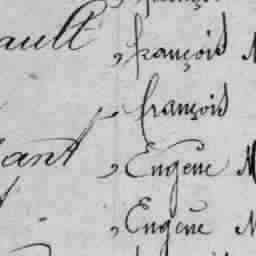 ault, françois M
françois
ant, Eugène M
, Eugène M